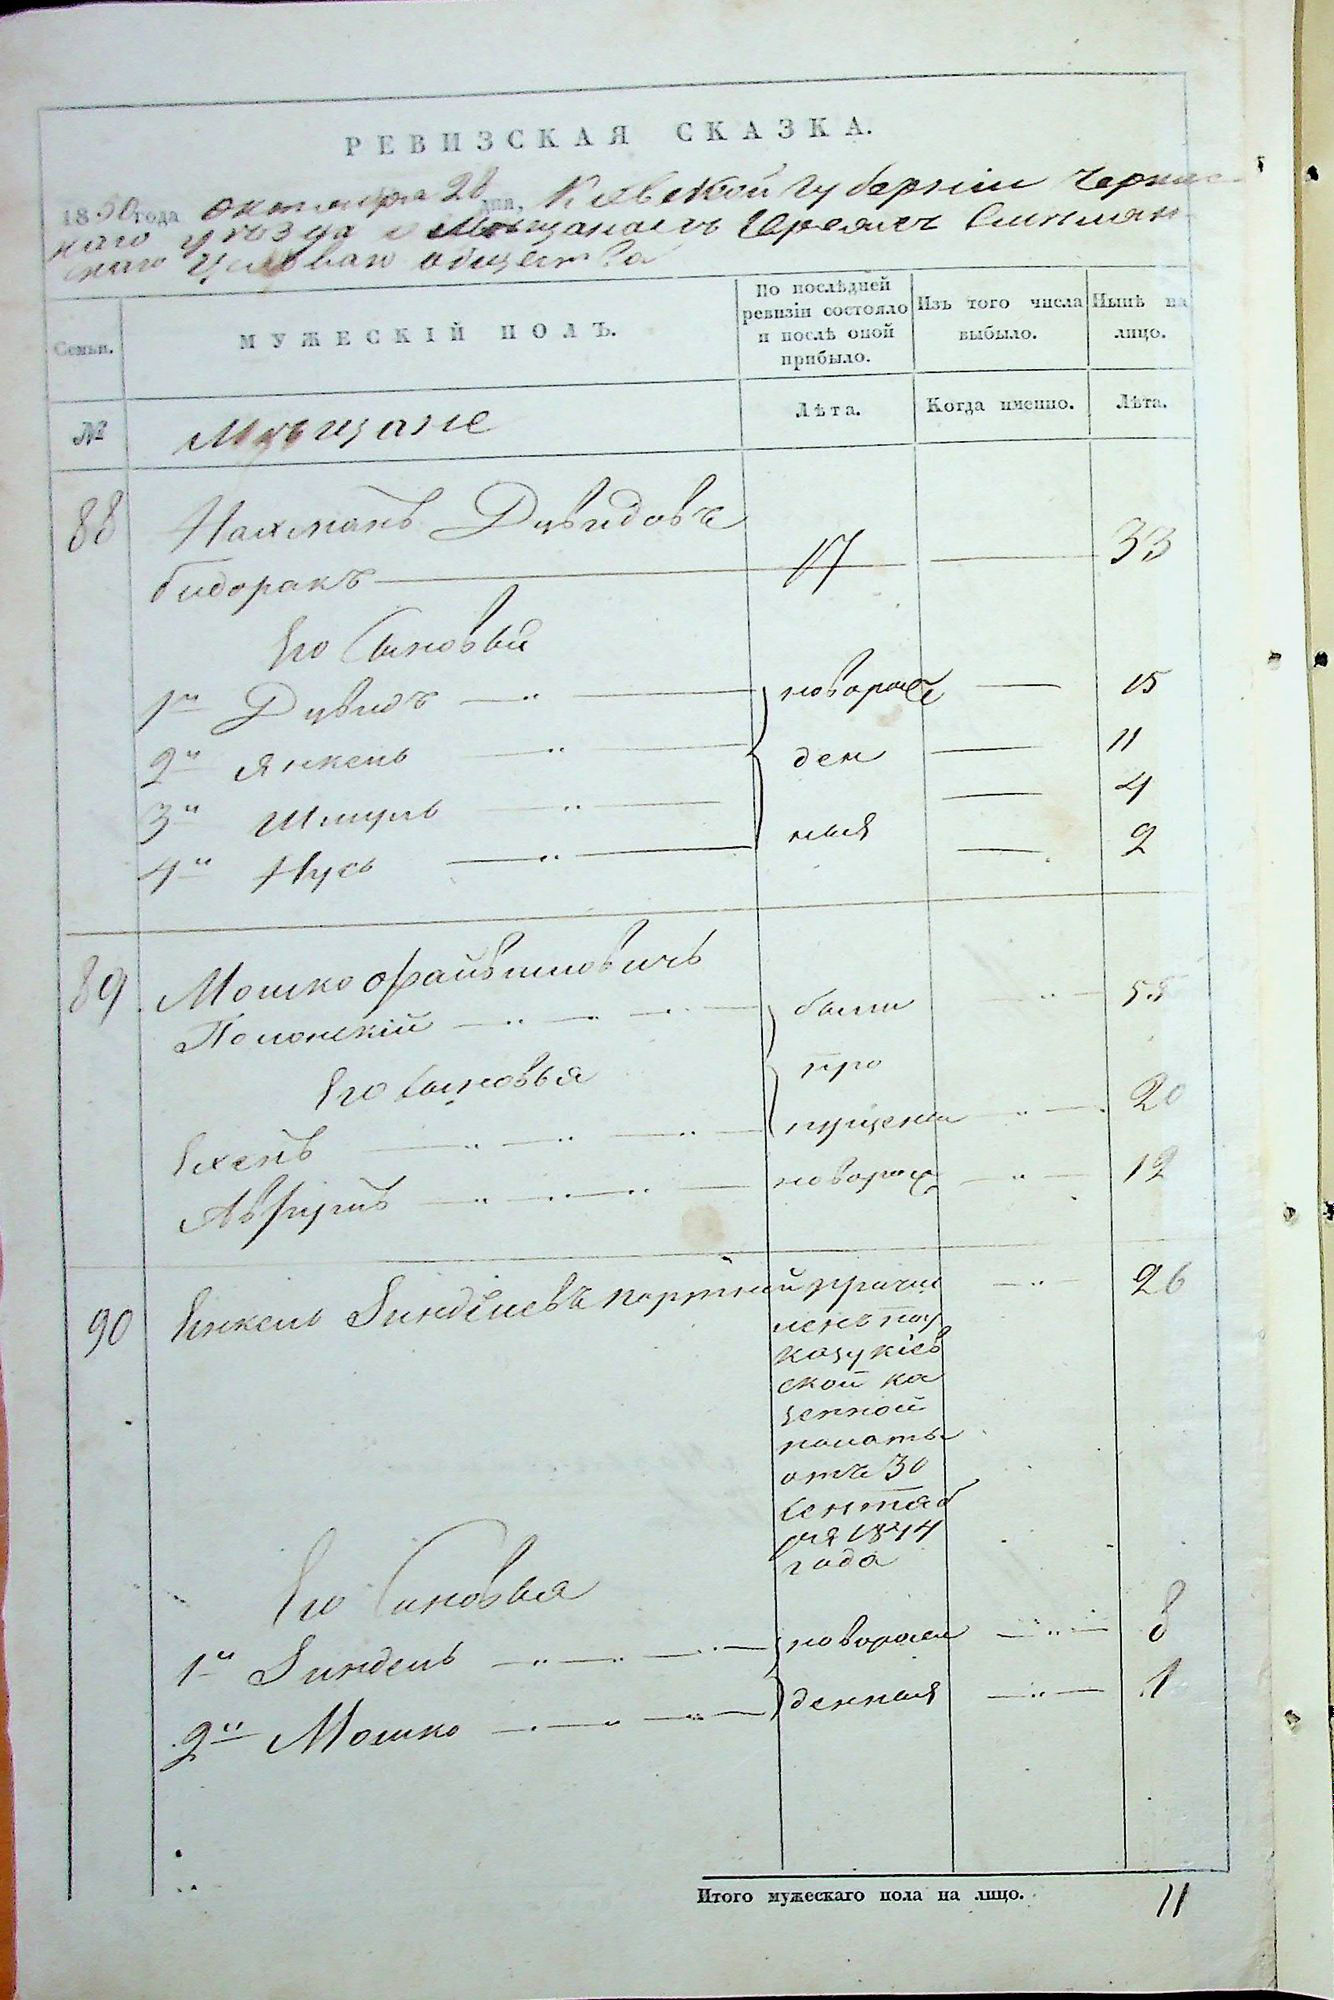 РЕВИЗСКАЯ СКАЗКА.
1850 года октября 28 дня, Киевской губернии Черкас-
каго уезда о Мещанахъ Евреяхъ
общества
Семьи.
МУЖЕСКІЙ ПОЛЪ.
По послѣдней ревизіи состояло и послѣ оной прибыло.
Изъ того числа выбыло.
Нынѣ на лицо.
№
Мещане
Лѣта.
Когда именно.
Лѣта.
88 Нахманъ Дувидовъ
Бидоракъ 17 33
Его Сыновьи
1й Дувидъ новорож 15
2й Янкель ден 11
3й Шмуль 4
4й Нусь ныя 2
89 Мошко Файвишовичъ
Полонскій были 55
Его Сыновья про
Ехенъ пущены 20
Аврумъ новорож 12
90 Янкель Зинделевъ причи 26
сленъ по у
казу Кіев
ской ка
зенной
палаты
отъ 30
Сентяб
ря 1844
года
Его Сыновья
1й Зиндель новорож 8
2й Мошко денныя 1
Итого мужескаго пола на лицо. 11